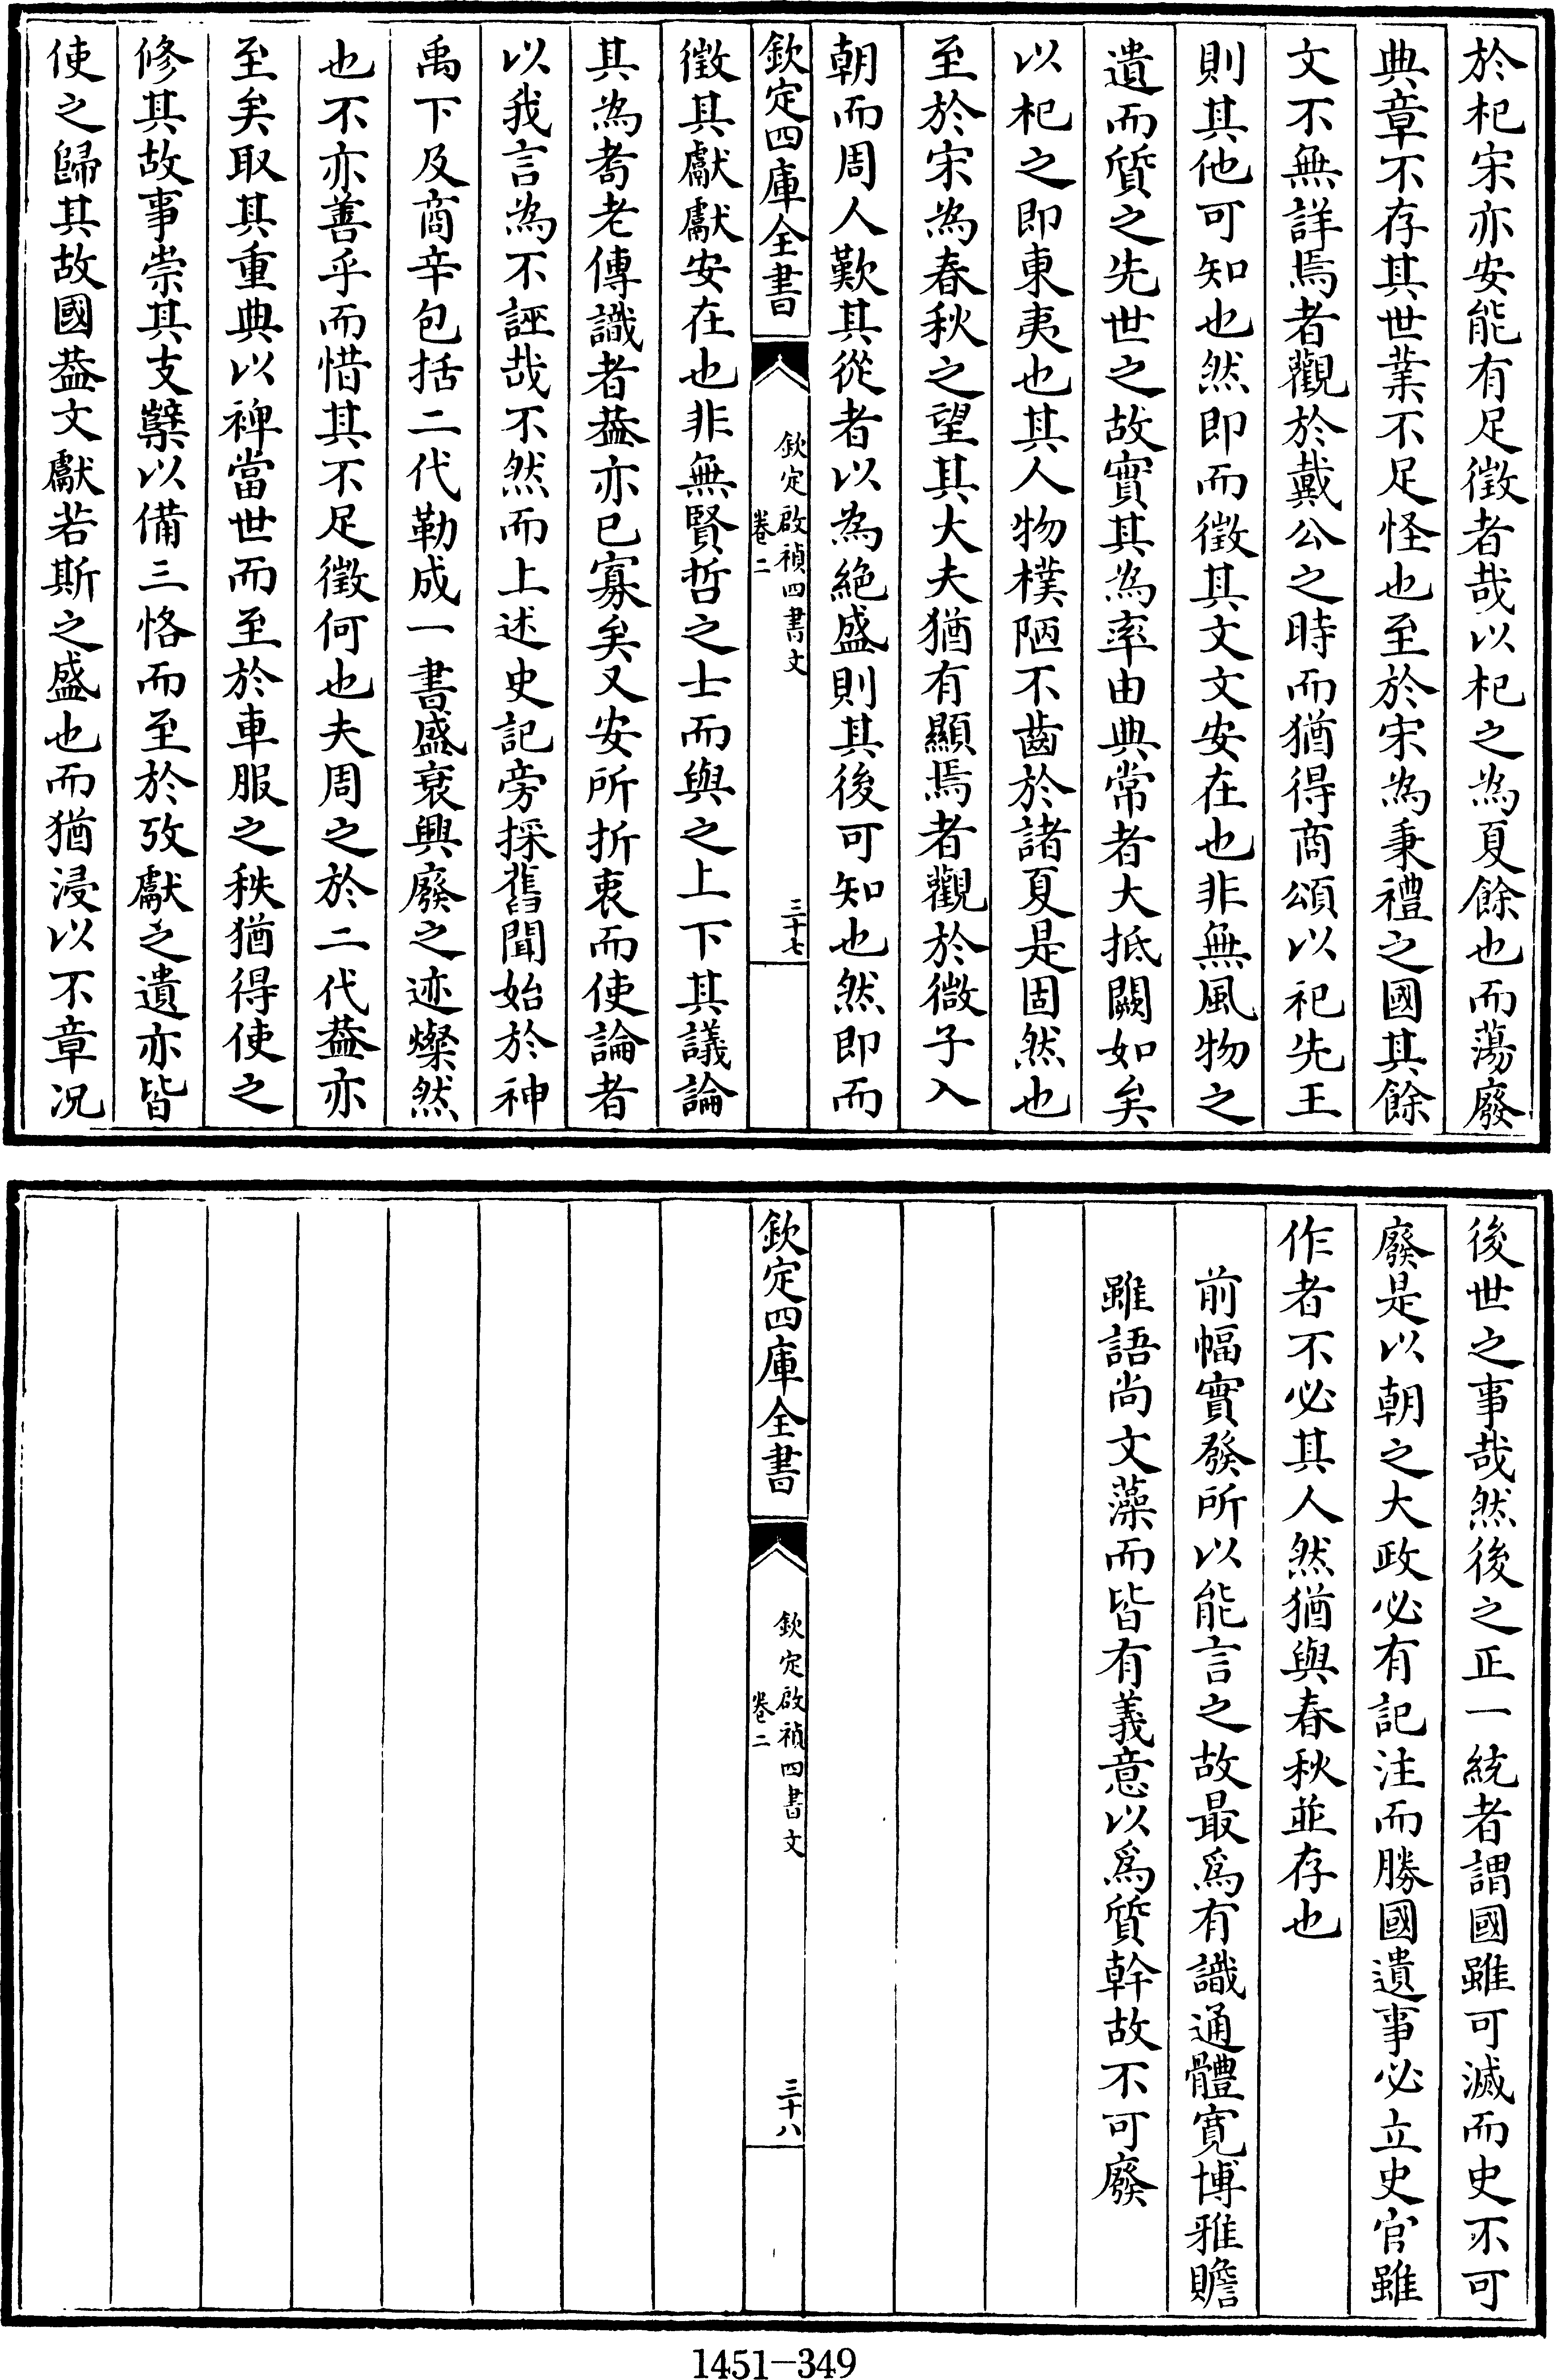 於杞宋亦安能有足徵者哉以杞之為夏餘也而蕩廢
典章不存其世業不足怪也至於宋為秉禮之國其餘
文不無詳焉者觀於戴公之時而猶得商頌以祀先王
則其他可知也然即而徵其文文安在也非無風物之
遺而質之先世之故實其為率由典常者大抵闕如矣
以杞之即東夷也其人物樸陋不齒於諸夏是固然也
至於宋為春秋之望其大夫猶有顯焉者觀於微子入
朝而周人歎其從者以為絕盛則其後可知也然即而
欽定四庫全書
欽定啟禎四書文
卷二
三十七
徵其獻獻安在也非無賢哲之士而與之上下其議論
其為耈老傳識者葢亦已寡矣又安所折衷而使論者
以我言為不誣哉不然而上述史記旁採舊聞始於神
禹下及商辛包括二代勒成一書盛衰興廢之迹燦然
也不亦善乎而惜其不足徵何也夫周之於二代葢亦
至矣取其重典以裨當世而至於車服之秩猶得使之
修其故事崇其支櫱以備三恪而至於攷獻之遺亦皆
使之歸其故國葢文獻若斯之盛也而猶浸以不章况
後世之事哉然後之正一統者謂國雖可滅而史不可
廢是以朝之大政必有記注而勝國遺事必立史官雖
作者不必其人然猶與春秋並存也
前幅實發所以能言之故最為有識通體寬博雅贍
雖語尚文藻而皆有義意以為質幹故不可廢
欽定四庫全書
欽定啟禎四書文
卷二
三十八
1451-349